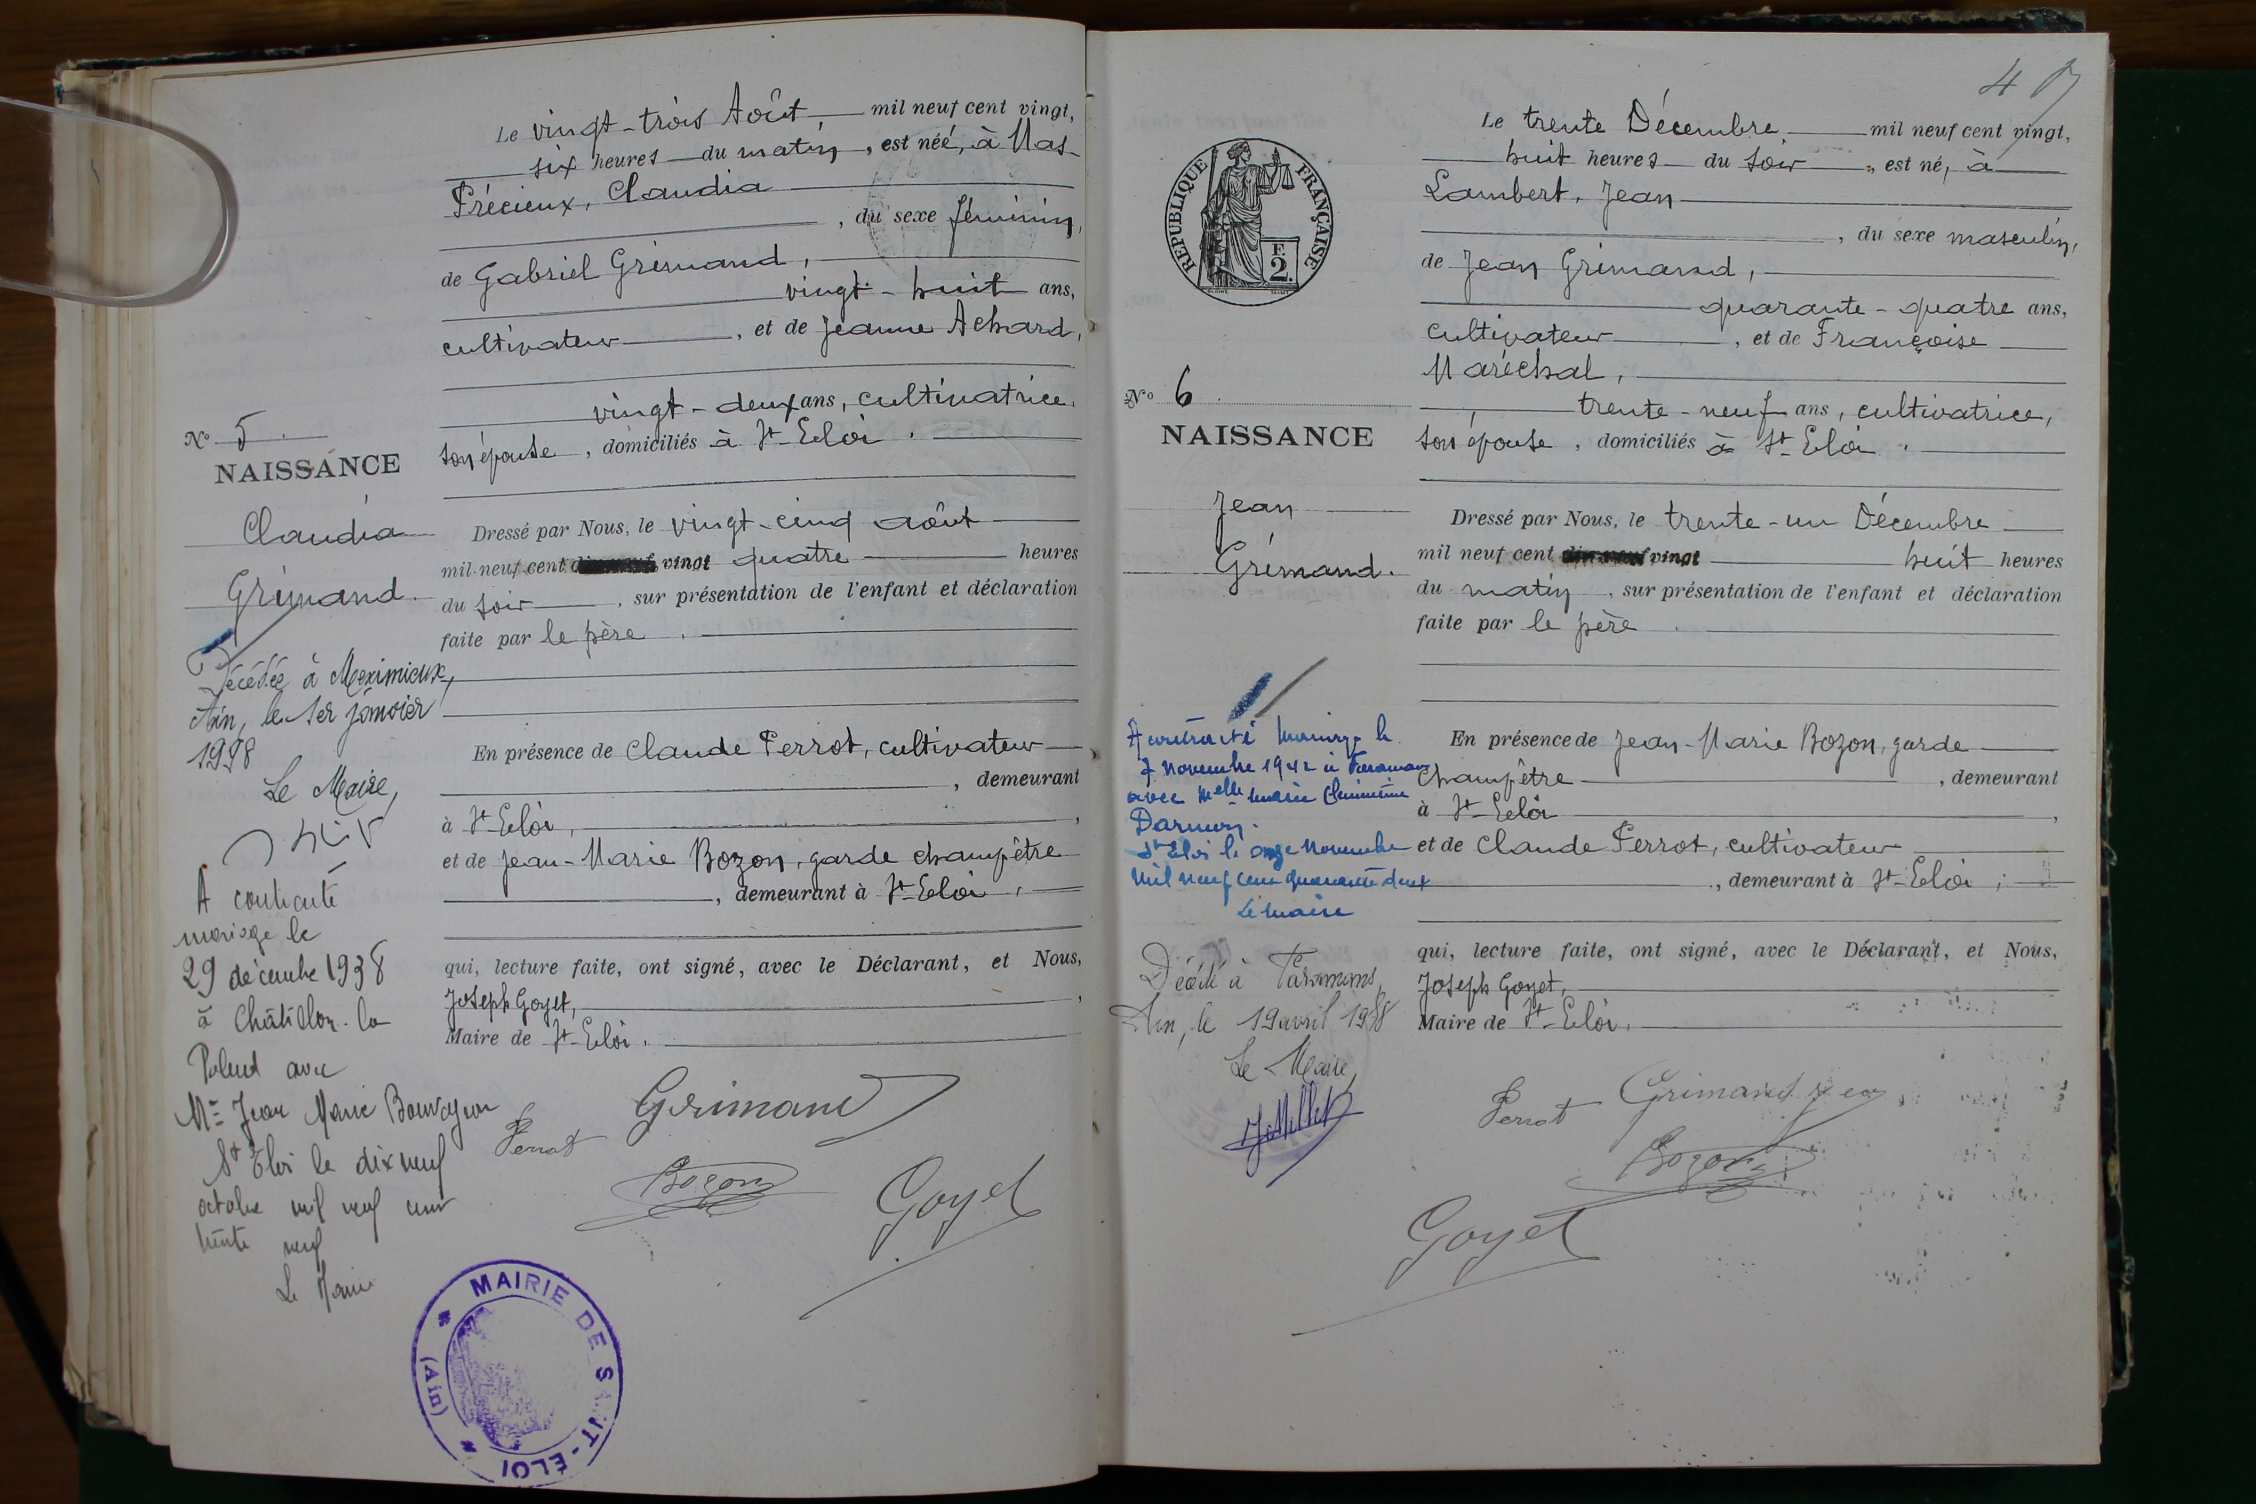 Le vingt-trois Août mil neuf cent vingt,
six heures du matin, est née, à Mas-
Précieux, Claudia
, du sexe féminin,
de Gabriel Grimand,
vingt-huit ans,
cultivateur, et de Jeanne Achard,
vingt-deux ans, cultivatrice,
son épouse, domiciliés à St-Eloi.
No 5.
NAISSANCE
Claudia
Grimand.
Dressé par Nous, le vingt-cinq août
mil neuf cent vingt quatre heures
du soir, sur présentation de l'enfant et déclaration
faite par le père.
Décédée à Meximieux,
Ain, le 1er janvier
Le Maire,
En présence de Claude Perrot, cultivateur
, demeurant
à St-Eloi,
et de Jean-Marie Bozon, garde champêtre
, demeurant à St-Eloi,
A contracté
mariage le
29 décembre 1938
à Châtillon-la
Palud avec
Mr Jean Marie
St Eloi le dix neuf
octobre mil neuf cent
trente neuf
Le Maire
qui, lecture faite, ont signé, avec le Déclarant, et Nous,
Joseph Goyet,
Maire de St-Eloi.
Grimand
Perrot
Bozon
Goyet
MAIRIE DE SAINT-ELOI
(Ain)
47
Le trente Décembre mil neuf cent vingt,
huit heures du soir, est né, à
Lambert, Jean
, du sexe masculin,
de Jean Grimand,
quarante-quatre ans,
cultivateur, et de Françoise
Maréchal,
trente-neuf ans, cultivatrice,
son épouse, domiciliés à St-Eloi.
RÉPUBLIQUE FRANÇAISE
F.
2.
No 6
NAISSANCE
Jean
Grimand.
Dressé par Nous, le trente-un Décembre
mil neuf cent vingt huit heures
du matin, sur présentation de l'enfant et déclaration
faite par le père.
A contracté mariage le
7 Novembre 1942 à Faramans
avec Melle Marie
St Eloi le onze Novembre
mil neuf cent quarante deux
Le maire
Décédé à Faramans,
Ain, le 19 avril
Le Maire,
En présence de Jean-Marie Bozon, garde
champêtre, demeurant
à St-Eloi,
et de Claude Perrot, cultivateur
, demeurant à St-Eloi;
qui, lecture faite, ont signé, avec le Déclarant, et Nous,
Joseph Goyet,
Maire de St-Eloi.
Perrot
Grimand Jean
Bozon
Goyet